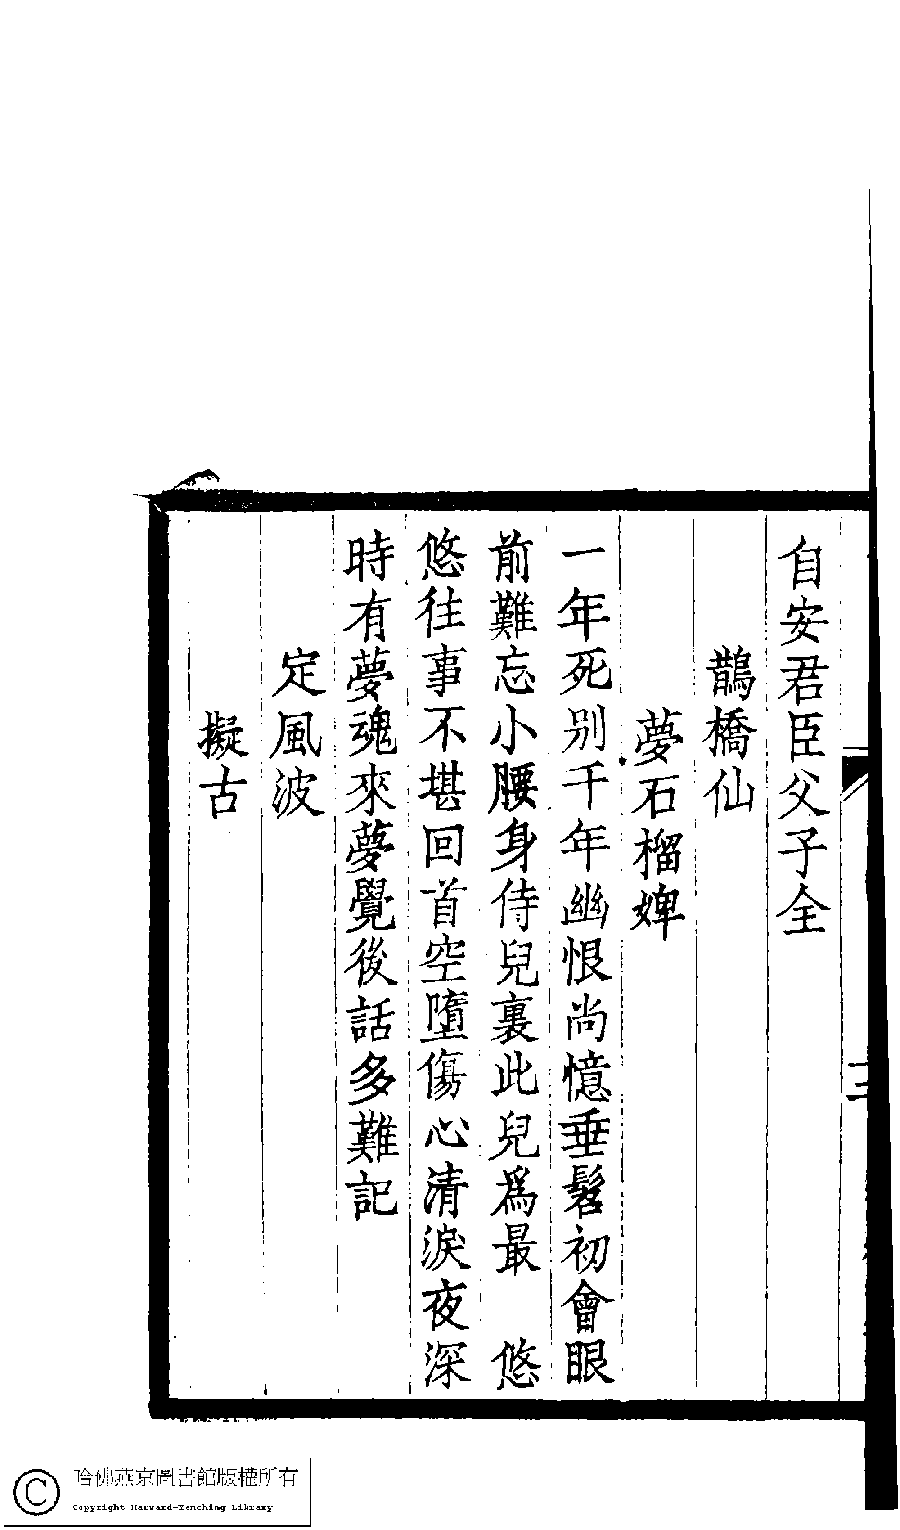 自安君臣父子全
鵲橋仙
夢石榴婢
一年死别千年幽恨尚憶垂髫初會眼
前難忘小腰身侍兒裏此兒爲最　悠
悠往事不堪回首空墮傷心清淚夜深
時有夢魂來夢覺後話多難記
定風波
擬古
哈佛燕京圖書館版權所有
Copyright Harvard-Yenching Library